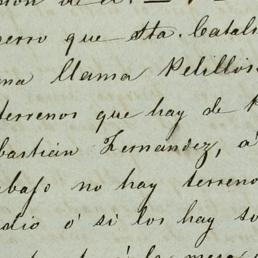 que Sta. Catal
una llama Pelillos
terrenos que hay de
bastián Fernandez, á
abajo no hay terreno
dio ó si los hay so
la mesa